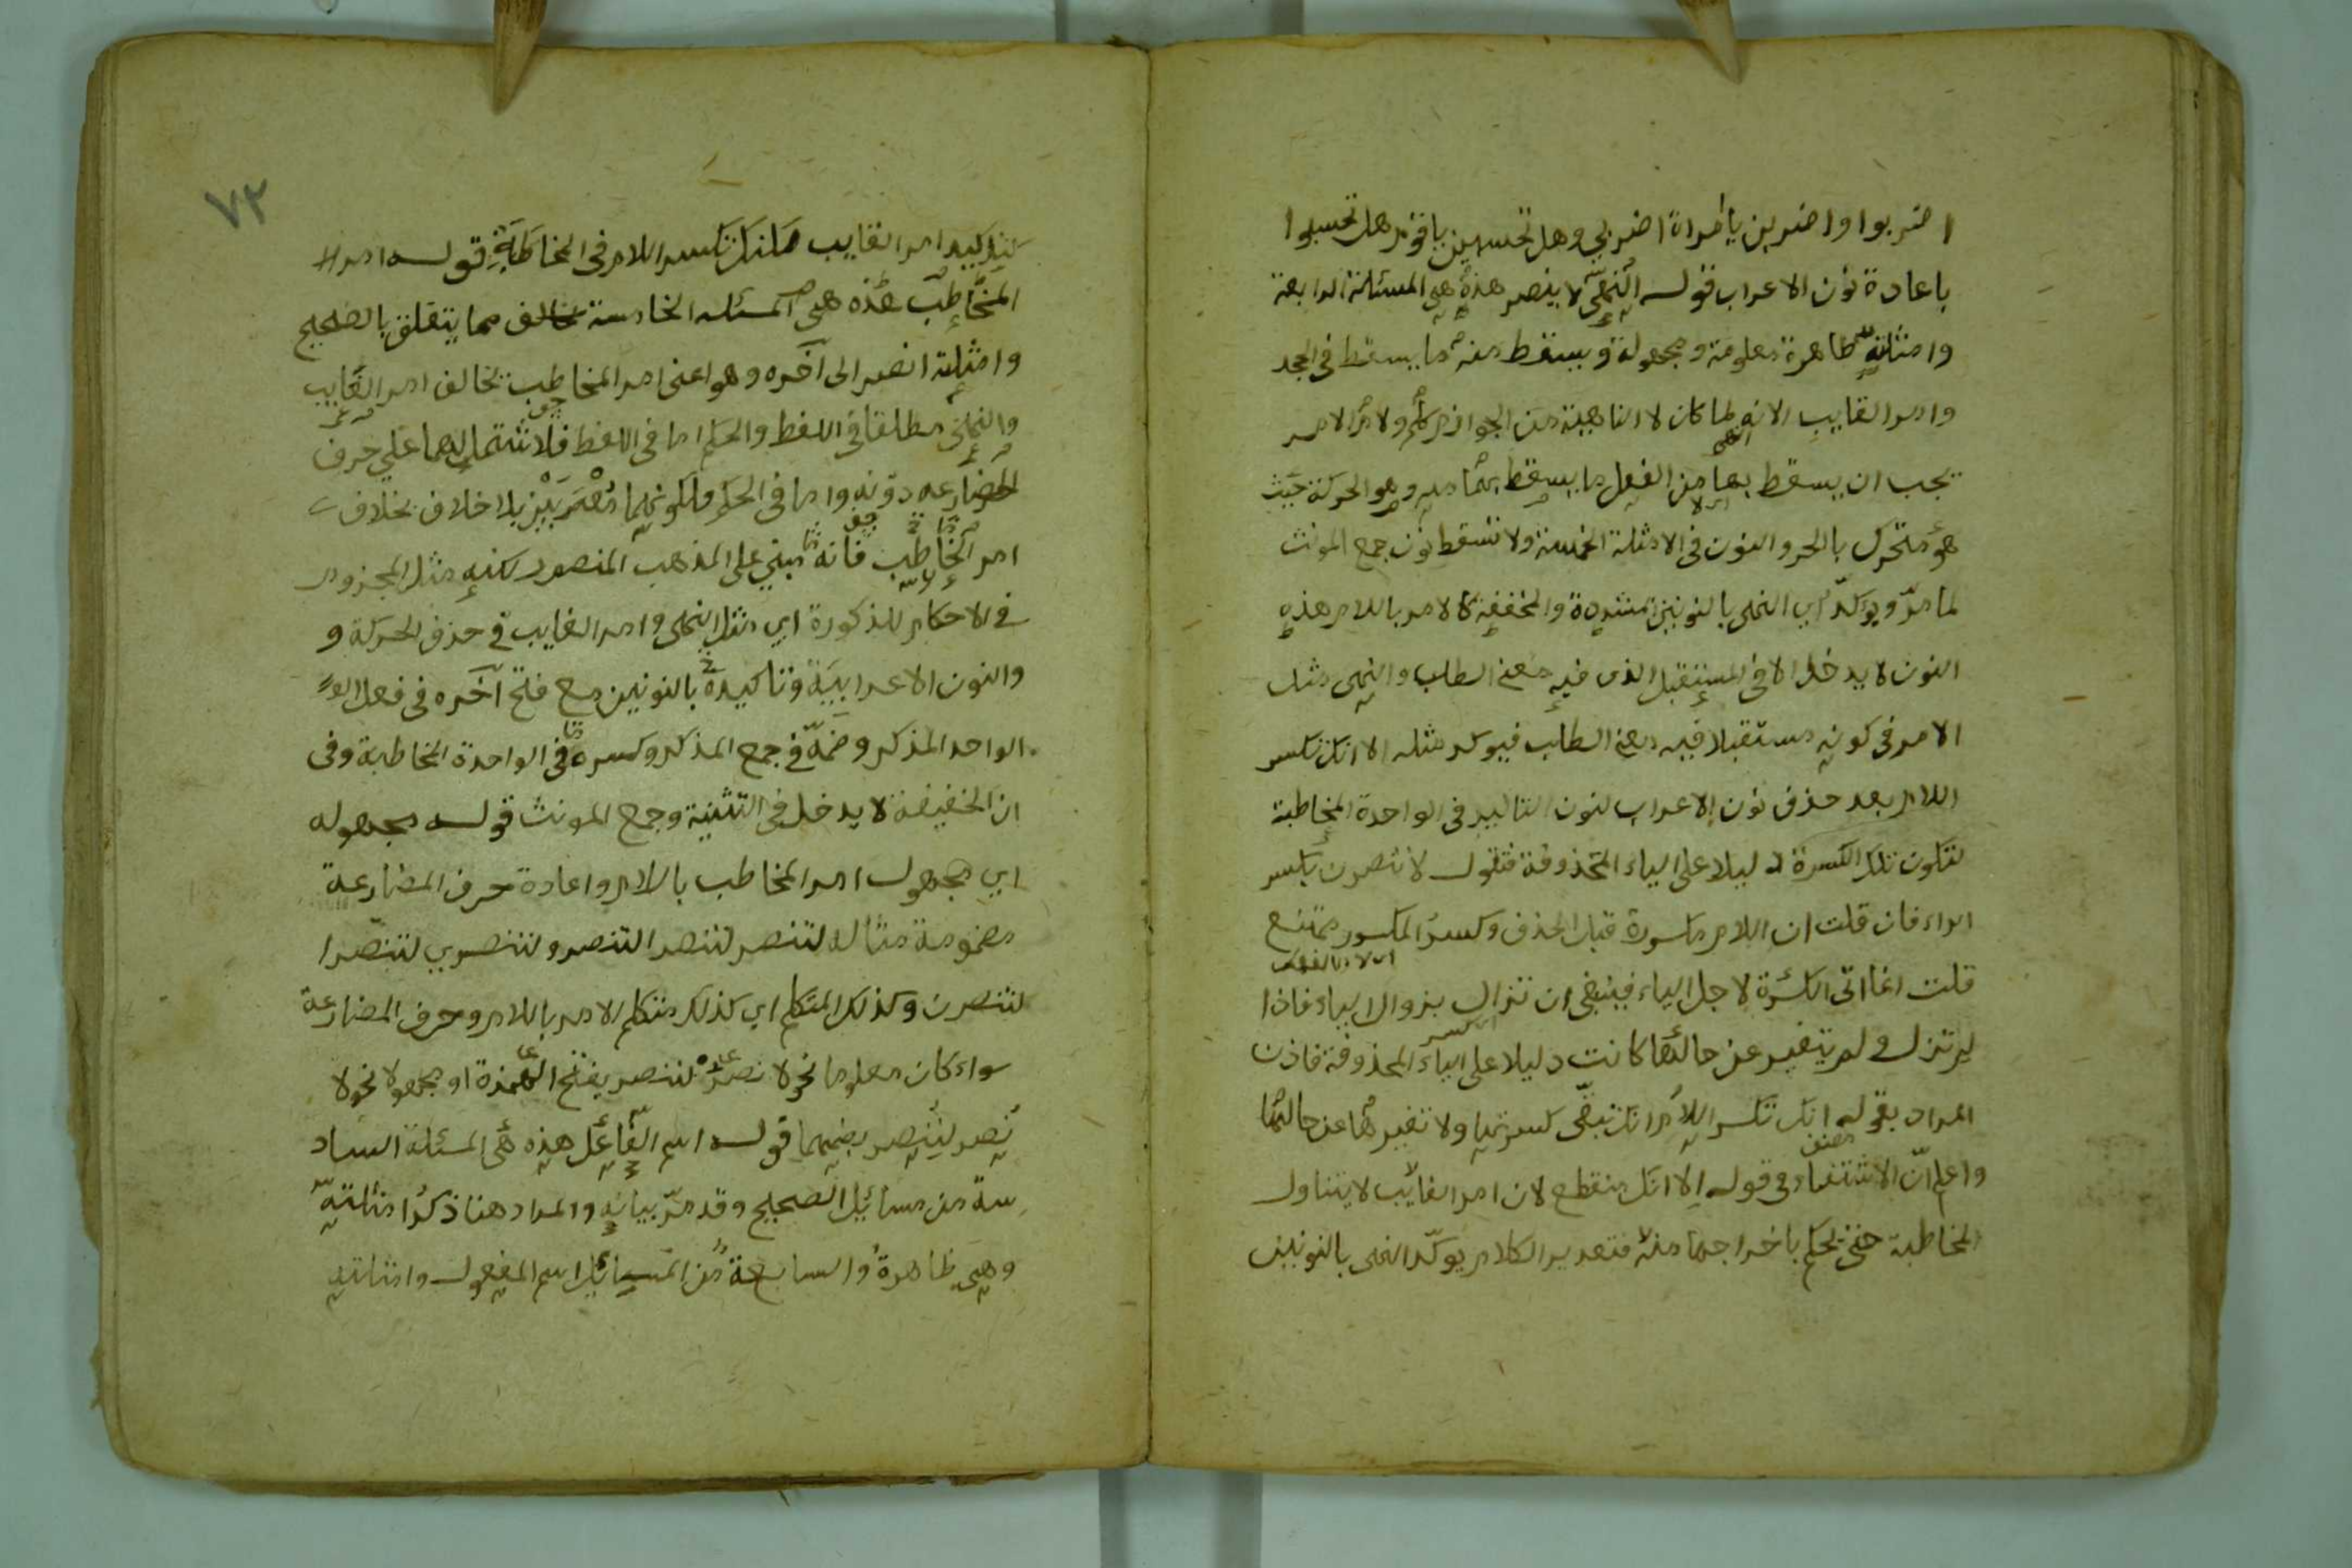 اضربوا واضربن يا امراة اضربي وهل تحسبين يا قوم هل تحسبوا
باعادة نون الاعراب قوله النهي لا ينصر هذه هي المسئلة الرابعة
وامثلته ظاهرة معلومة ومجهولة ويسقط منه ما يسقط في الجحد
وامر الغايب لانه لما كان لا الناهية من الجوازم كلم ولام الامر
يجب ان يسقط بها من الفعل ما يسقط بهما منه وهو الحركة حيث
هو متحرك بالحر والنون في الامثلة الخمسة ولا تسقط نون جمع المونث
لما مرّ ويوكدّ اي النهي بالنونين المشددة والمخففة كالامر باللام هذه
النون لا يدخل الا في المستقبل الذي فيه معنى الطلب والنهي مثل
الامر في كونه مستقبلا فيه معنى الطلب فيوكد مثله الا انك تكسر
اللام بعد حذف نون الاعراب لنون التاكيد في الواحدة المخاطبة
لتكون تلك الكسرة دليلا على الياء المحذوفة فتقول لا تنصرن بكسر
الراء فان قلت ان اللام مكسورة قبل الحذف وكسر المكسور ممتنع
قلت انما اتى الكسرة لاجل الياء فينبغي ان تزال بزوال الياء فاذا
لم تزل ولم يتغير عن حالتها كانت دليلا على الياء المحذوفة فاذن
المراد بقوله انك تكسر اللام انك تبقى كسرتها ولا تغيرها عن حالتها
واعلم انّ الاستثناء في قوله الا انك منقطع لان امر الغايب لا يتناول
المخاطبة حتى يحكم باخراجها منه فتقدير الكلام يوكّد النهي بالنونين
٧٢
كتاكيد امر الغايب لكنك تكسر اللام في المخاطبة قوله امر
المخاطب هذه هي المسئله الخامسة مما يتعلق بالصحيح
وامثلته انصر الى آخره وهو اعنى امر المخاطب يخالف امر الغايب
والنهي مطلقا في اللفظ والحكم اما في اللفظ فلاشتمالهما على حرف
المضارعه دونه واما في الحكم فلكونهما معربين بلا خلاف بخلاف
امر المخاطب فانه مبني على المذهب المنصور لكنه مثل المجزوم
في الاحكام المذكورة اي مثل النهي وامر الغايب في حذف الحركة و
والنون الاعرابية وتاكيده بالنونين مع فتح آخره في فعل
الواحد المذكر وضمه في جمع المذكر وكسره في الواحدة المخاطبة وفى
ان الخفيفة لا يدخل في التثنية وجمع المونث قوله مجهوله
اي مجهول امر المخاطب باللام واعادة حرف المضارعة
مضمومة مثاله لتنصر لتنصرا لتنصروا لتنصري لتنصرا
لتنصرن وكذلك المتكلم اي كذلك متكلم الامر باللام وحرف المضارعة
سواء كان معلوما نحو لانصر لننصر بفتح الهمزة او مجهولا نحو لا
نصر لننصر بضمهما قوله اسم الفاعل هذه هي المسئلة الساد
سة من مسائل الصحيح وقد مرّ بيانه والمراد هنا ذكر امثلته
وهي ظاهرة والسابعة من المسائل اسم المفعول وامثلته